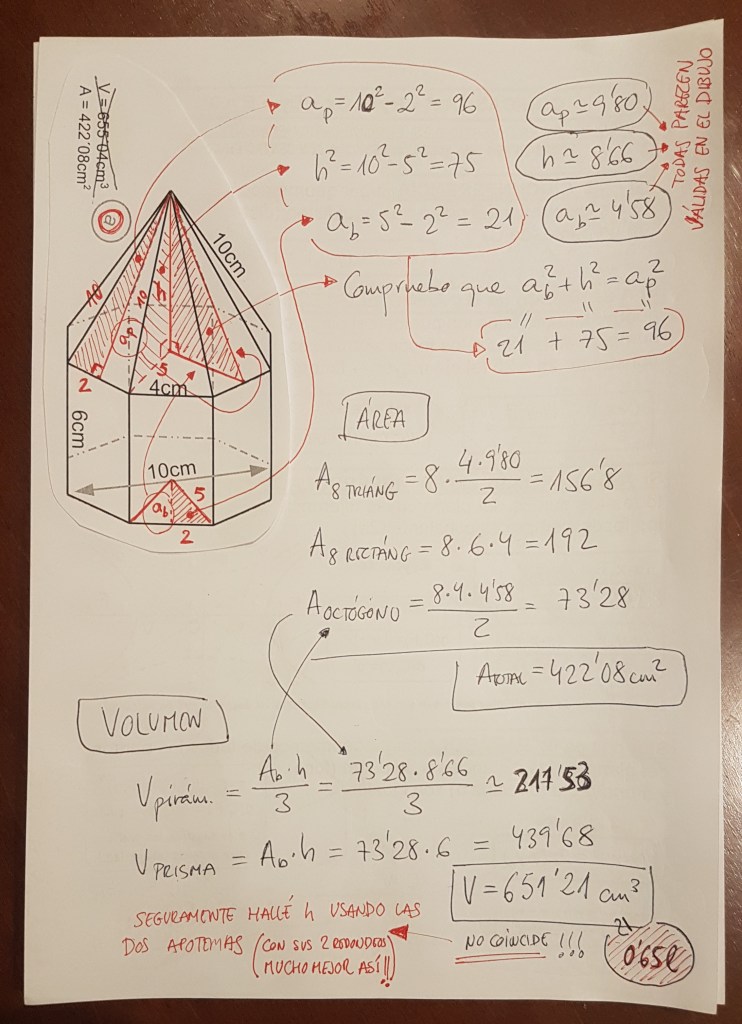 V = 655'04cm³
A = 422'08cm²
a
aₚ = 10² - 2² = 96
h² = 10² - 5² = 75
a_b = 5² - 2² = 21
aₚ ≃ 9'80
h ≃ 8'66
a_b ≃ 4'58
TODAS PARECEN
VÁLIDAS EN EL DIBUJO
Compruebo que a_b² + h² = aₚ²
21 + 75 = 96
10cm
10
10
h
aₚ
5
2
4cm
6cm
10cm
a_b
5
2
ÁREA
A 8 TRIÁNG = 8 · 4·9'80 / 2 = 156'8
A 8 RECTÁNG = 8·6·4 = 192
A OCTÓGONO = 8·4·4'58 / 2 = 73'28
A TOTAL = 422'08 cm²
VOLUMEN
V pirám. = A_b·h / 3 = 73'28·8'66 / 3 ≃ 211'53
V PRISMA = A_b·h = 73'28·6 = 439'68
V = 651'21 cm³
SEGURAMENTE HALLÉ h USANDO LAS
DOS APOTEMAS (CON SUS 2 REDONDEOS)
MUCHO MEJOR ASÍ!!
NO COINCIDE!!!
21
0'65l